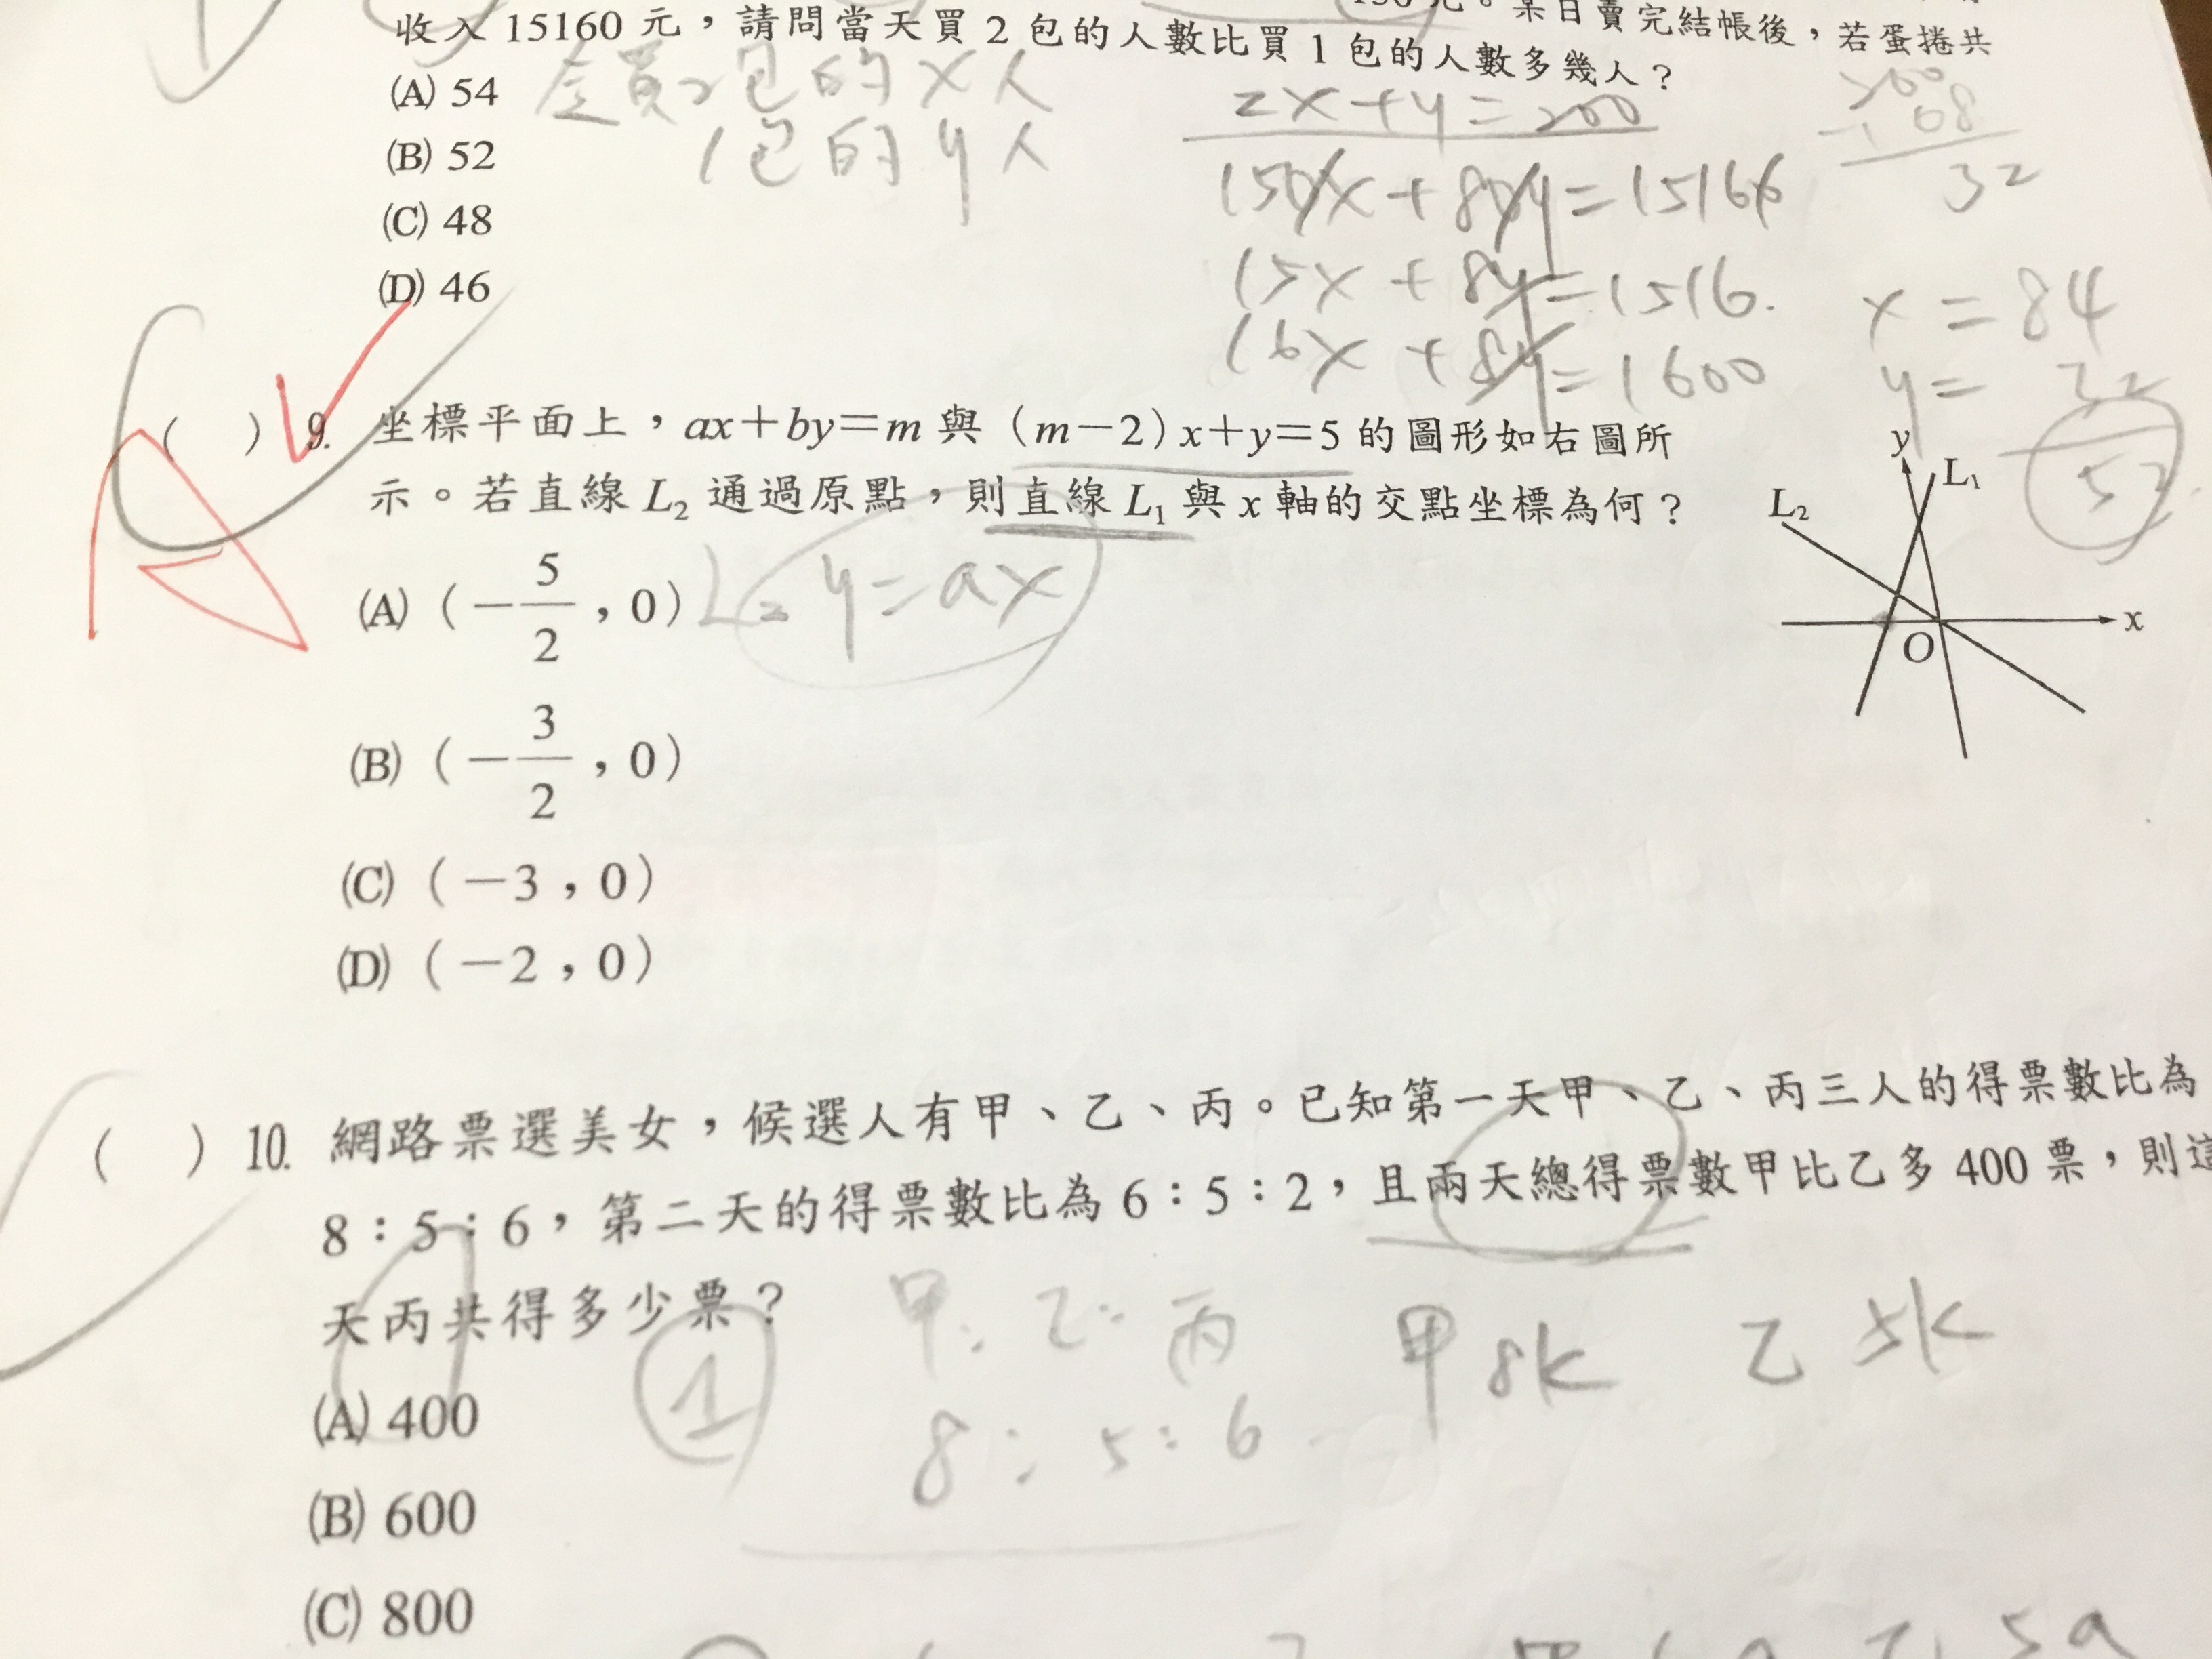 元。某日賣完結帳後,若蛋捲共
收入 15160 元,請問當天買 2 包的人數比買 1 包的人數多幾人?
(A) 54
(B) 52
(C) 48
(D) 46
買2包的 x 人
1包的 y 人
2x+y=200
150x+80y=15160
15x+8y=1516
16x+8y=1600
200
32
x=84
y=32
52
( ) 9. 坐標平面上,ax+by=m 與(m-2)x+y=5 的圖形如右圖所
示。若直線 L₂ 通過原點,則直線 L₁ 與 x 軸的交點坐標為何?
(A)(-5/2,0)
(B)(-3/2,0)
(C)(-3,0)
(D)(-2,0)
y=ax
y
L₁
L₂
O
x
( ) 10. 網路票選美女,候選人有甲、乙、丙。已知第一天甲、乙、丙三人的得票數比為
8:5:6,第二天的得票數比為 6:5:2,且兩天總得票數甲比乙多 400 票,則這
天丙共得多少票?
(A) 400
(B) 600
(C) 800
1
甲:乙:丙
8:5:6
甲 8k 乙 5k
乙 5a